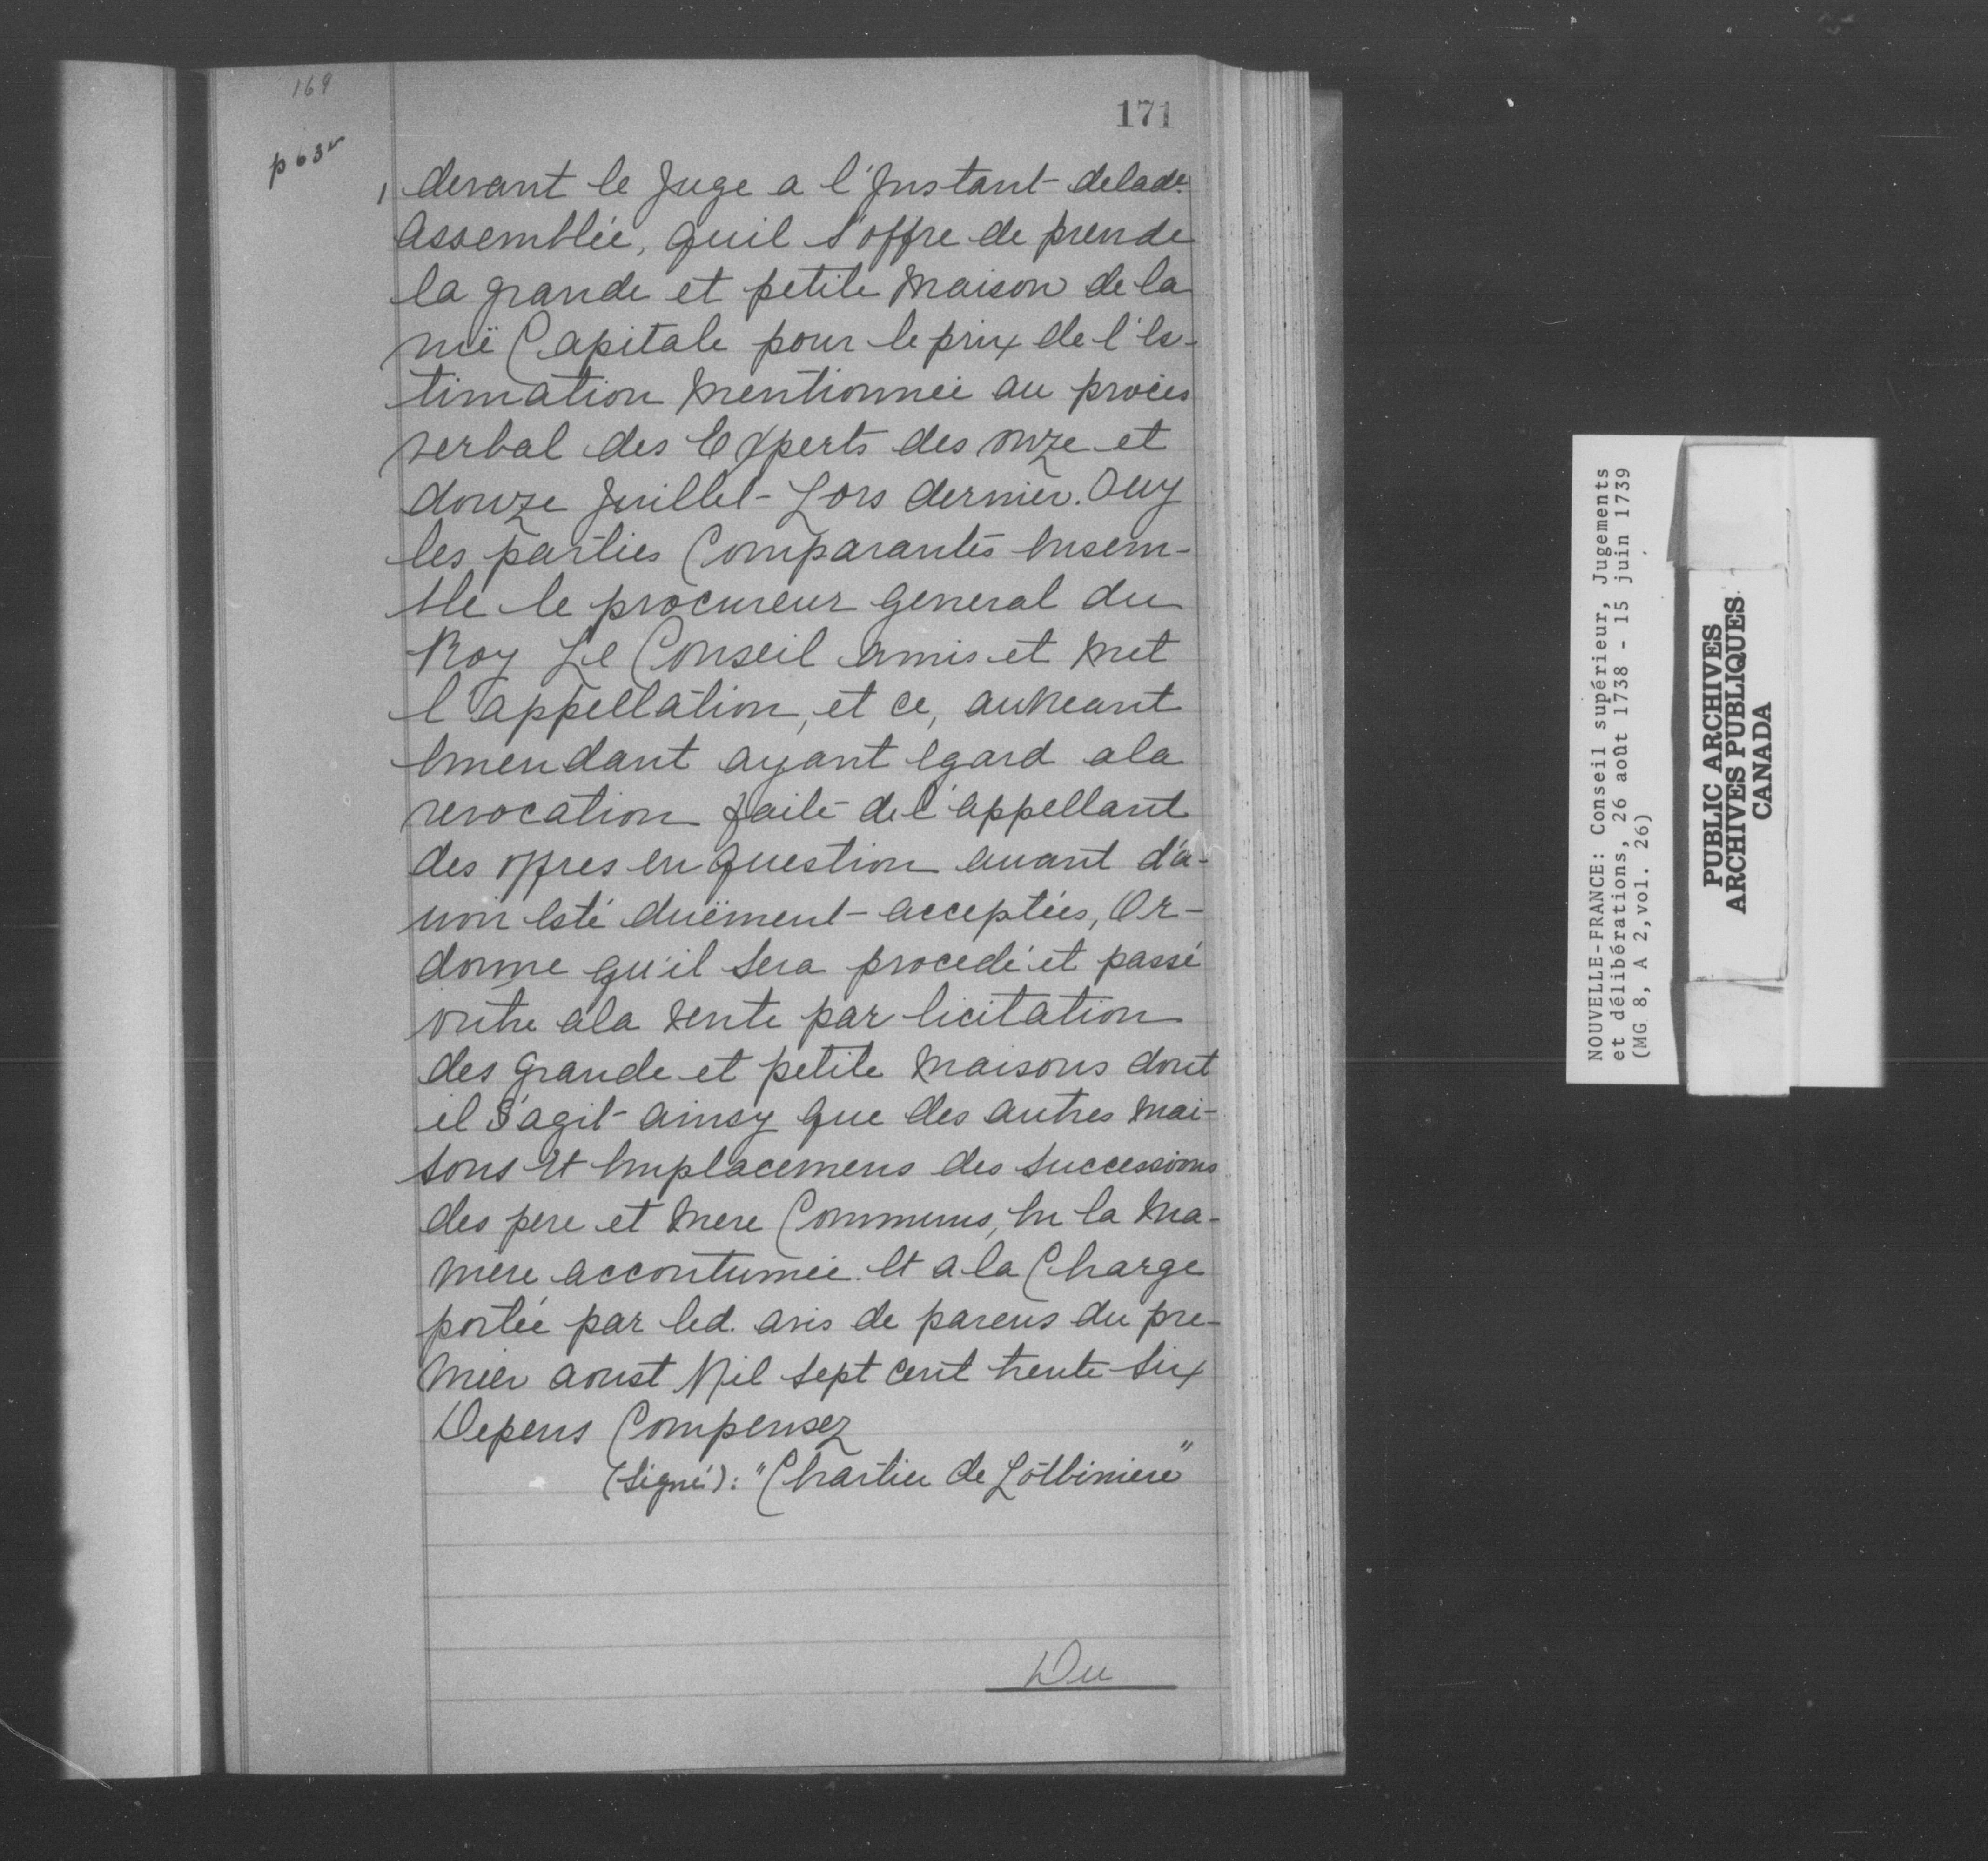 169
171
p 63v
devant le Juge a l'Instant delade.
assemblée, quil s'offre de prende
la grande et petite Maison de la
nuë Capitale pour le prix de l'es-
timation Mentionnée au procès
verbal des Experts des onze et
douze Juillet Lors dernier. Ouy
les parties Comparantes Ensem-
ble le procureur general du
Roy Le Conseil amis et Met
l'appellation, et ce, au Neant
Emendant ayant egard ala
revocation faite de l'appellant
des offres en question auant d'a-
uoir esté duëment acceptées, Or-
donne qu'il sera procedé et passé
outre ala Vente par licitation
des grande et petite Maisons dont
il S'agit ainsy que des autres Mai-
sons Et Emplacemens des successions
des pere et Mere Communs, En la Ma-
niere accoutumée. Et a la Charge
portée par led. avis de parens du pre-
Mier aoust Mil sept cent trente six
Depens Compensez
(signé): "Chartier de Lotbiniere"
Du
NOUVELLE-FRANCE: Conseil supérieur, Jugements
et délibérations, 26 août 1738 - 15 juin 1739
(MG 8, A 2, vol. 26)
PUBLIC ARCHIVES
ARCHIVES PUBLIQUES
CANADA